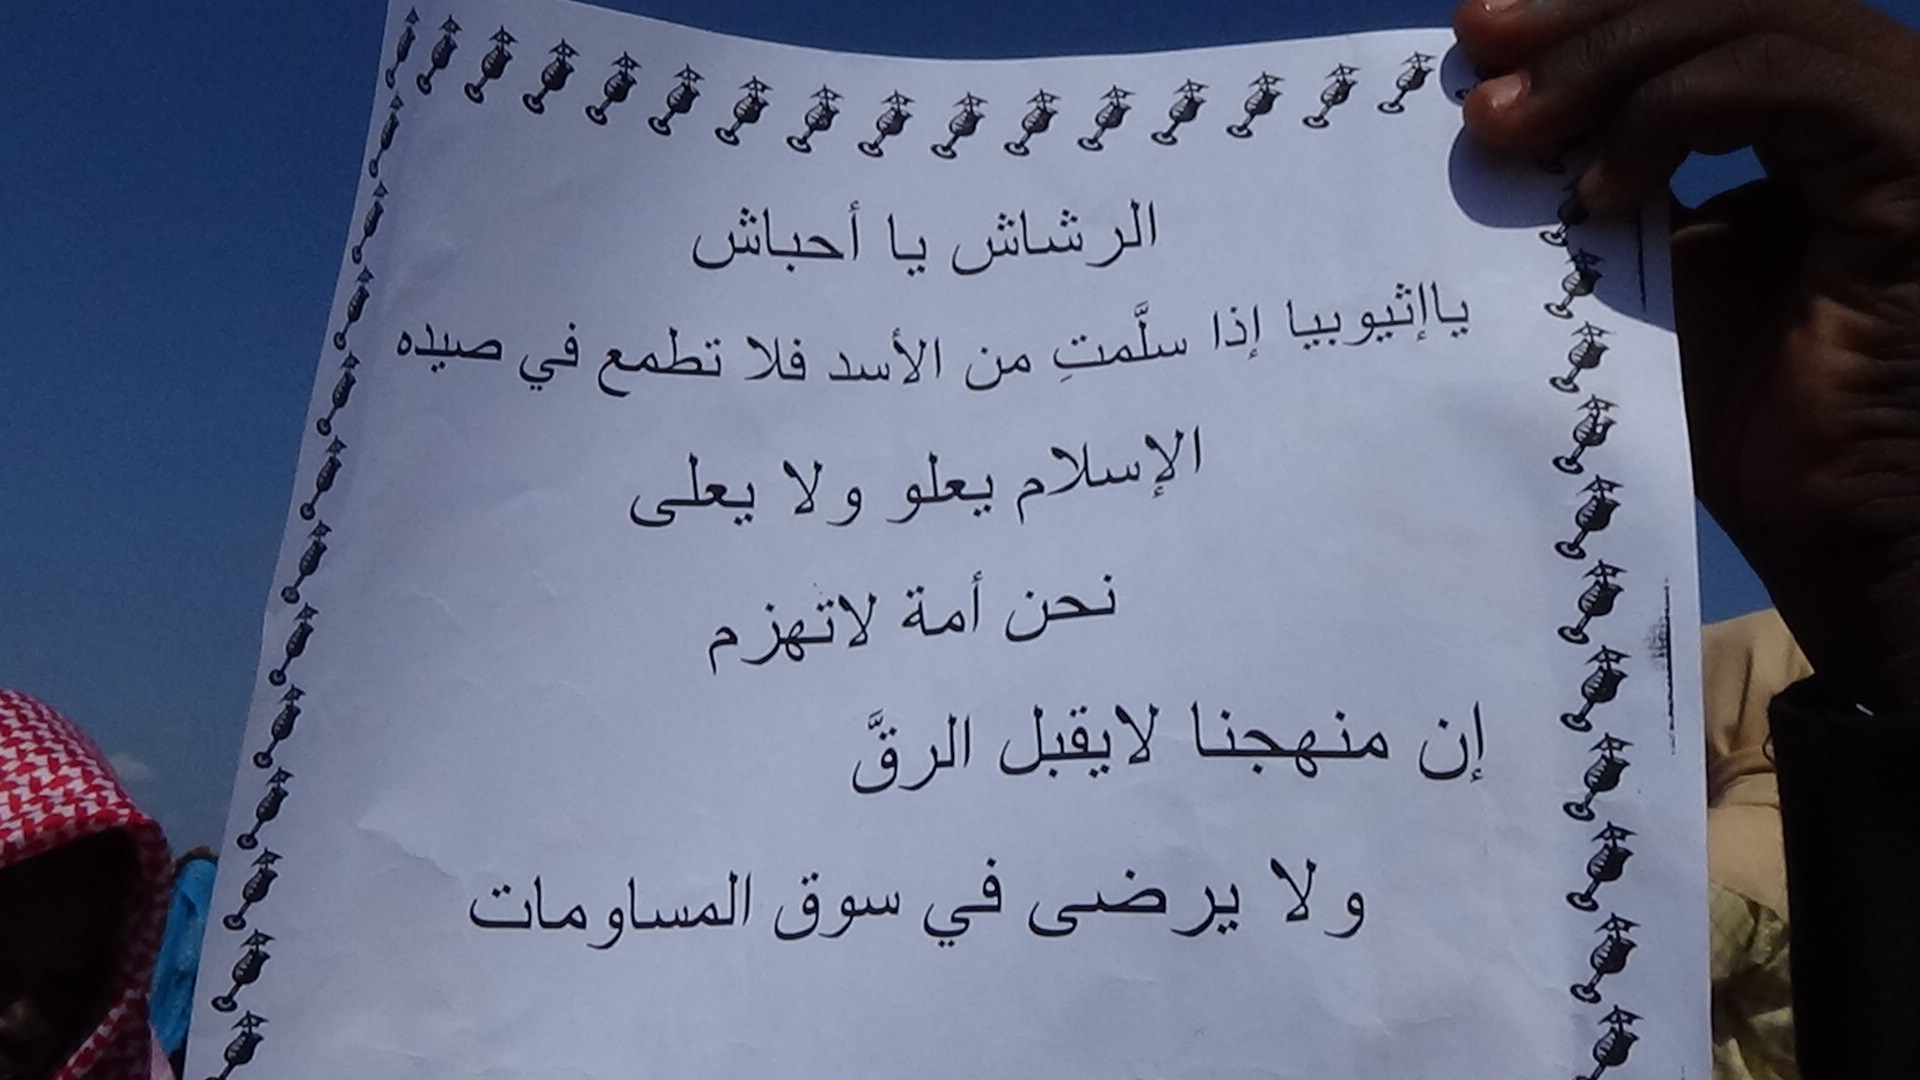 الرشاش يا أحباش
ياإثيوبيا إذا سلَّمتِ من الأسد فلا تطمع في صيده
الإسلام يعلو ولا يعلى
نحن أمة لاتهزم
إن منهجنا لايقبل الرقَّ
ولا يرضى في سوق المساومات